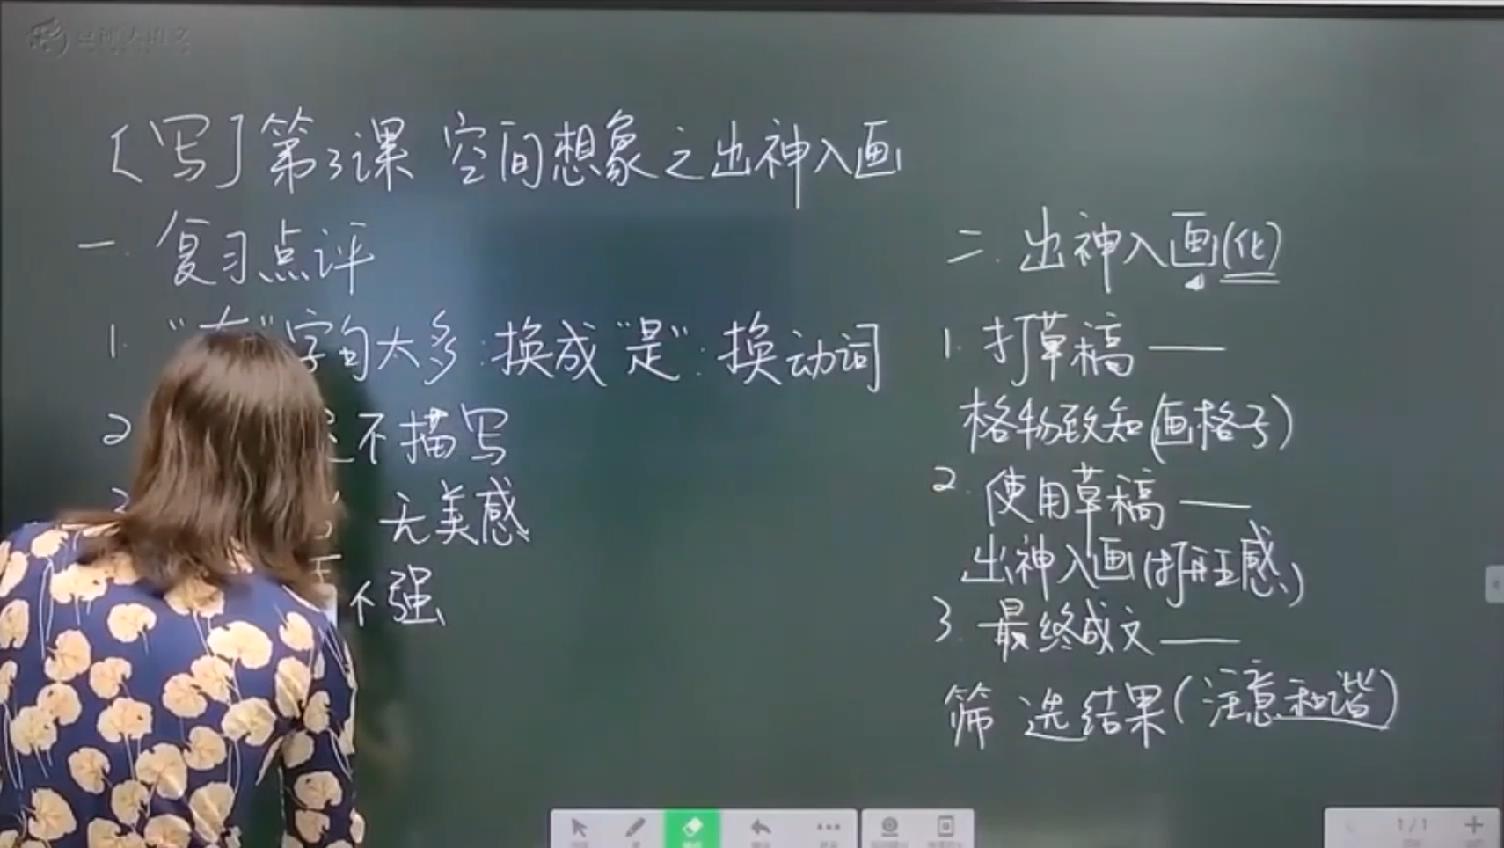 [写]第3课 空间想象之出神入画
一. 复习点评
1. “有”字句太多:换成“是”:换动词
2 不描写
无美感
不强
二. 出神入画(化)
1. 打草稿——
格物致知(画格子)
2. 使用草稿——
出神入画(打开五感)
3. 最终成文——
筛选结果(注意和谐)
1/1